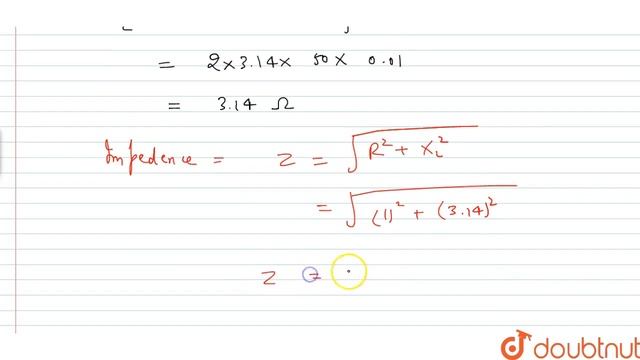 = 2×3.14× 50× 0.01
= 3.14 Ω
Impedence = Z = √R² + X_L²
= √(1)² + (3.14)²
Z =
doubtnut